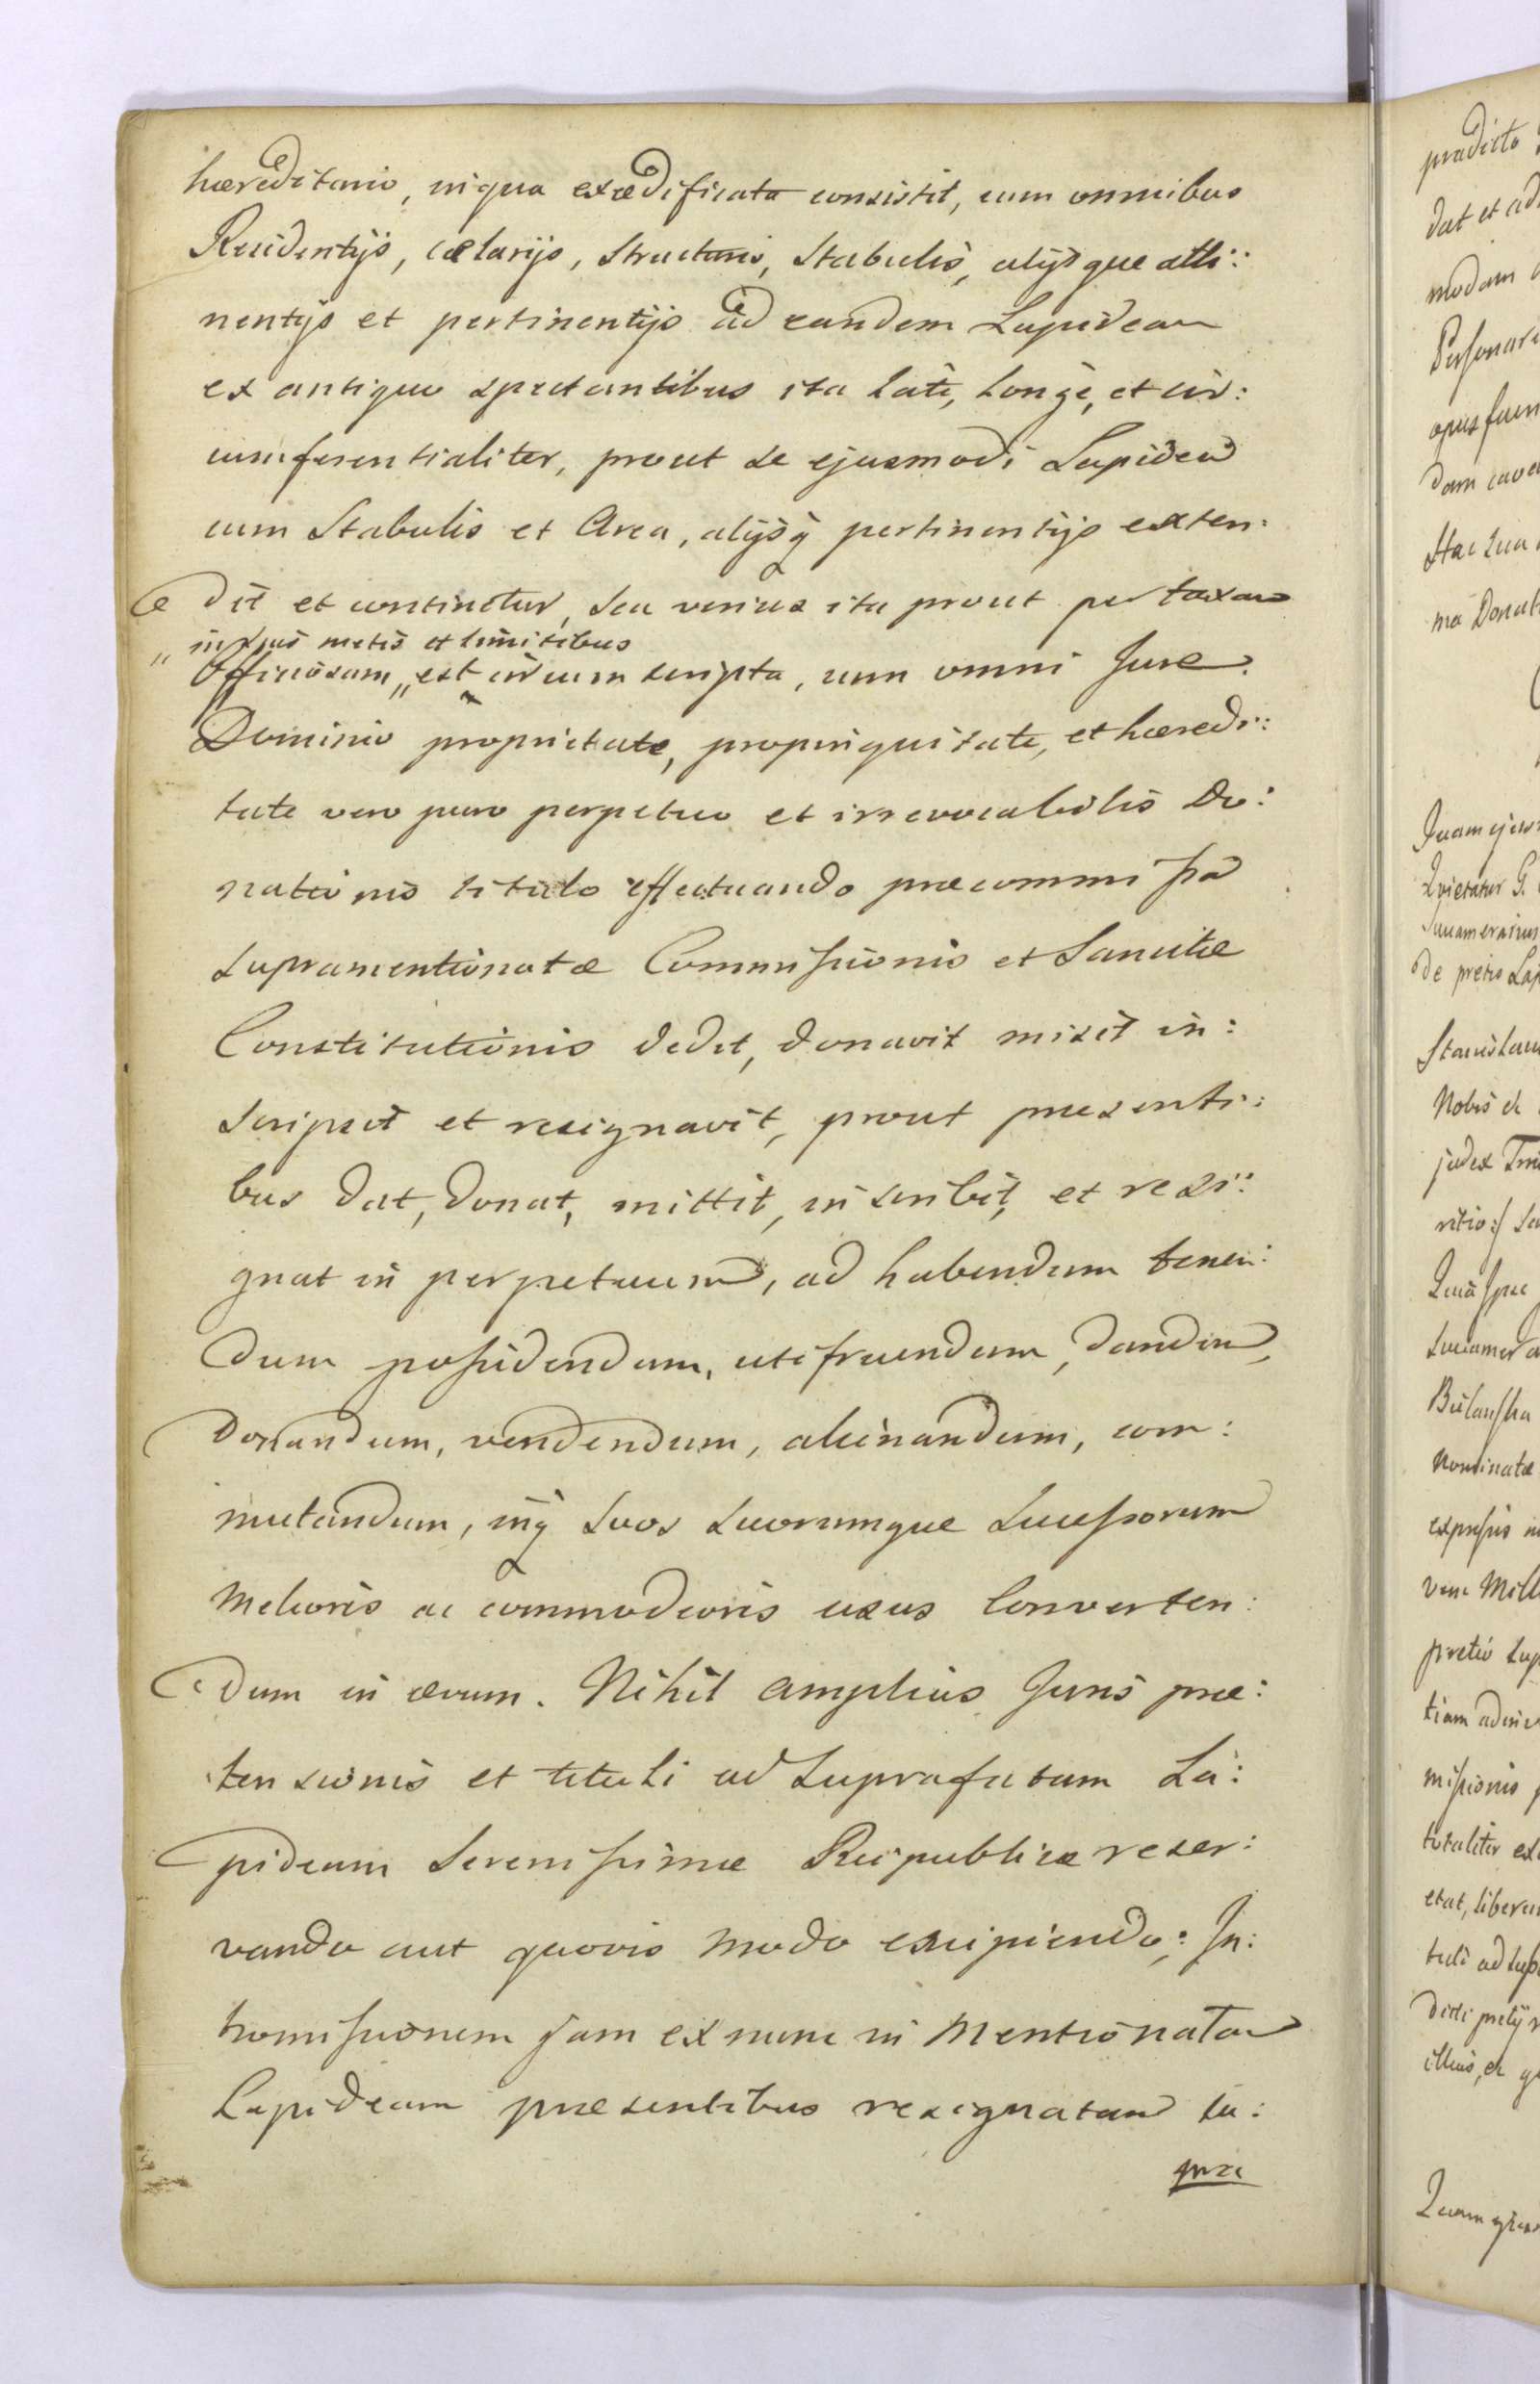 hæreditario, in qua exædificata consistit, cum omnibus
Residentijs, cælarijs, Structuris, Stabulis, alijsque atti:
nentijs et pertinentijs ad eandem Lapideam
ex antiquo spectantibus ita late, longe, et cir:
cumferentialiter, prout se ejusmodi Lapidea
cum Stabulis et Area, alijsq pertinentijs exten:
dit et continetur, seu verius ita prout per taxam
„ in suis metis et limitibus
Officiosam „ est circumscripta, cum omni Jure
Dominio proprietate, propinquitate, et hæredi:
tate vero puro perpetuo et irrevocabilis Do:
nationis titulo effectuando præcommissa
supramentionatæ Commissionis et Sancitæ
Constitutionis dedit, donavit misit in:
scripsit et resignavit, prout præsenti:
bus dat, donat, mittit, inscribit, et resi:
gnat in perpetuum, ad habendum tenen:
dum possidendum, utifruendum, dandum,
donandum, vendendum, alienandum, com:
mutandum, inq suos suorumque Successorum
melioris ac commodioris usus Converten:
dum in ævum. Nihil amplius Juris præ:
tensionis et tituli ad Suprafatam La:
pideam Serenissimæ Reipublicæ reser:
vando aut quovis modo excipiendo; In:
tromissionem jam ex nunc in mentionatam
Lapideam præsentibus resignatam su:
præ
prædicto
dat et ad
modam
Personar
opus fuer
dam
Hac sua
ma Donat
Quam ejus
Quietatur G.
de pretio Lap
Stanislau
Nobis et
judex
ritio:/ Su
nominatæ
expressis in
pretio Sup
tiam
missionis p
totaliter ex
etat, liberu
tuli ad sup
dicti pretij
illius, et